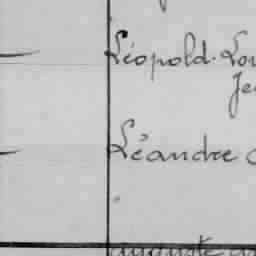 Léopold Lou
Je
Léandre